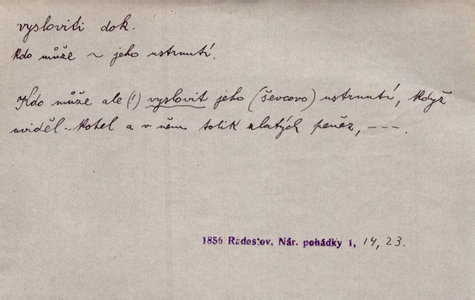 vysloviti dok.
Kdo může ~ jeho ustrnutí.
Kdo může ale (!) vyslovit jeho (ševcovo) ustrnutí, když
uviděl .. kotel a v něm tolik zlatých peněz, ---.
1856 Radostov, Nár. pohádky 1, 14, 23.